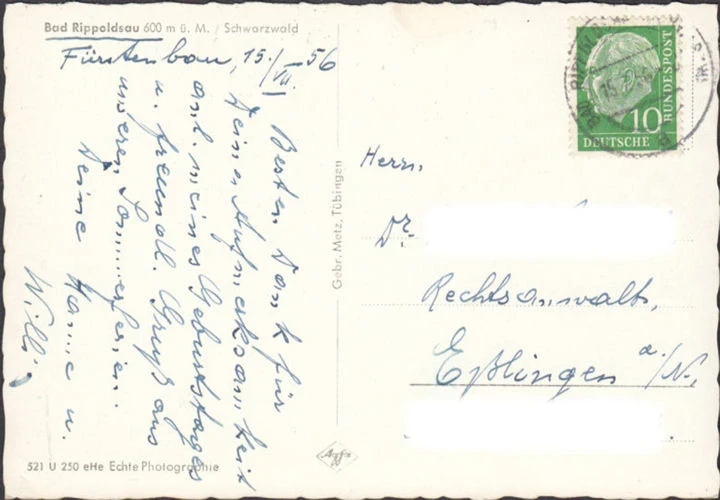 Bad Rippoldsau 600 m ü. M. / Schwarzwald
Fürstenbau, 15./VII. 56
Besten Dank für
Deine Aufmerksamkeit
anl. meines Geburtstages
u. freundl. Gruß aus
unseren Sommerferien.
Deine Hanne u.
Willi.
521 U 250 eHe Echte Photographie
Gebr. Metz, Tübingen
Agfa
10
DEUTSCHE BUNDESPOST
Herrn,
Dr.
Rechtsanwalt,
Eßlingen a./N.,